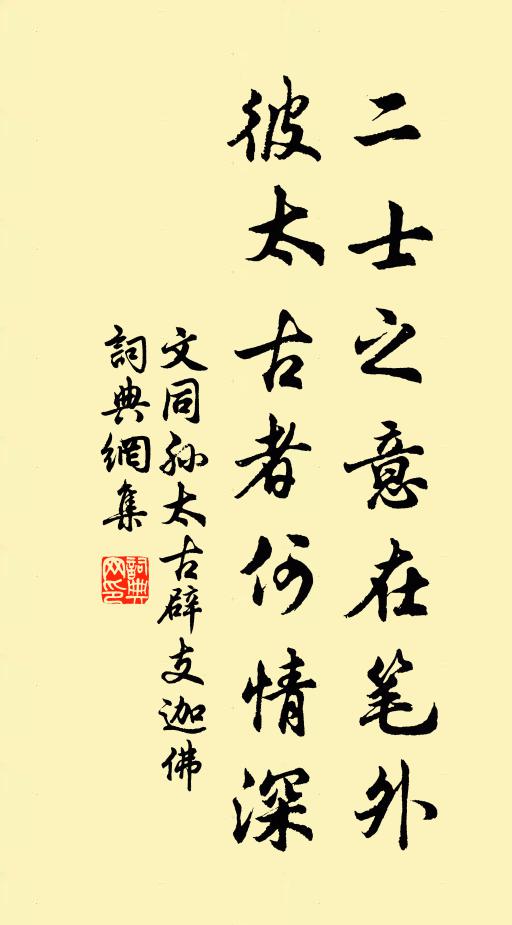 二士之意在笔外
彼太古者何情深
文同孙太古辟支迦佛
詞典網集
詞典网印